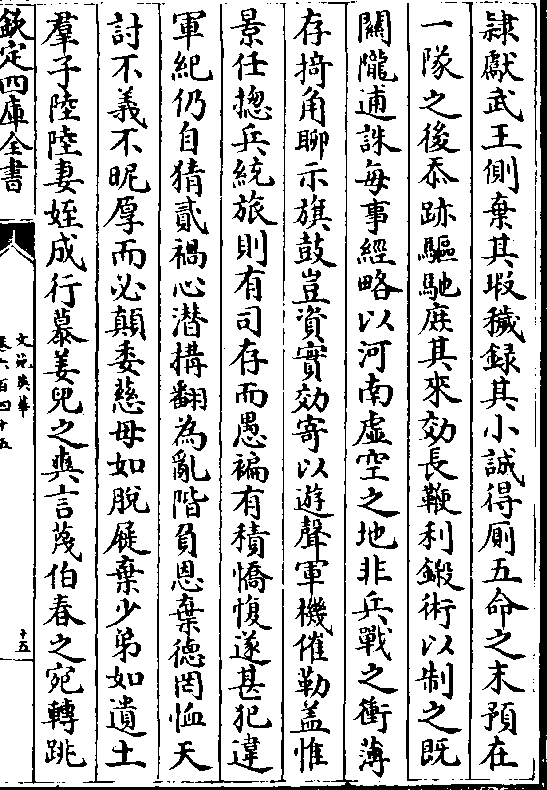 隷獻武王側棄其瑕穢録其小誠得厠五命之末預在
一隊之後忝跡驅馳庶其來効長鞭利鎩術以制之既
關隴逋誅每事經略以河南虚空之地非兵戰之衝薄
存掎角聊示旗鼓豈資實効寄以遊聲軍機催勒盖惟
景任揔兵統旅則有司存而愚褊有積憍愎遂甚犯違
軍紀仍自猜貳禍心潛搆翻為亂階負恩棄德罔恤天
討不義不昵厚而必顛委慈母如脱屣棄少弟如遺土
羣子陸陸妻姪成行慕姜兒之爽言蔑伯春之宛轉跳
欽定四庫全書
文苑英華
卷六百四十五
十五